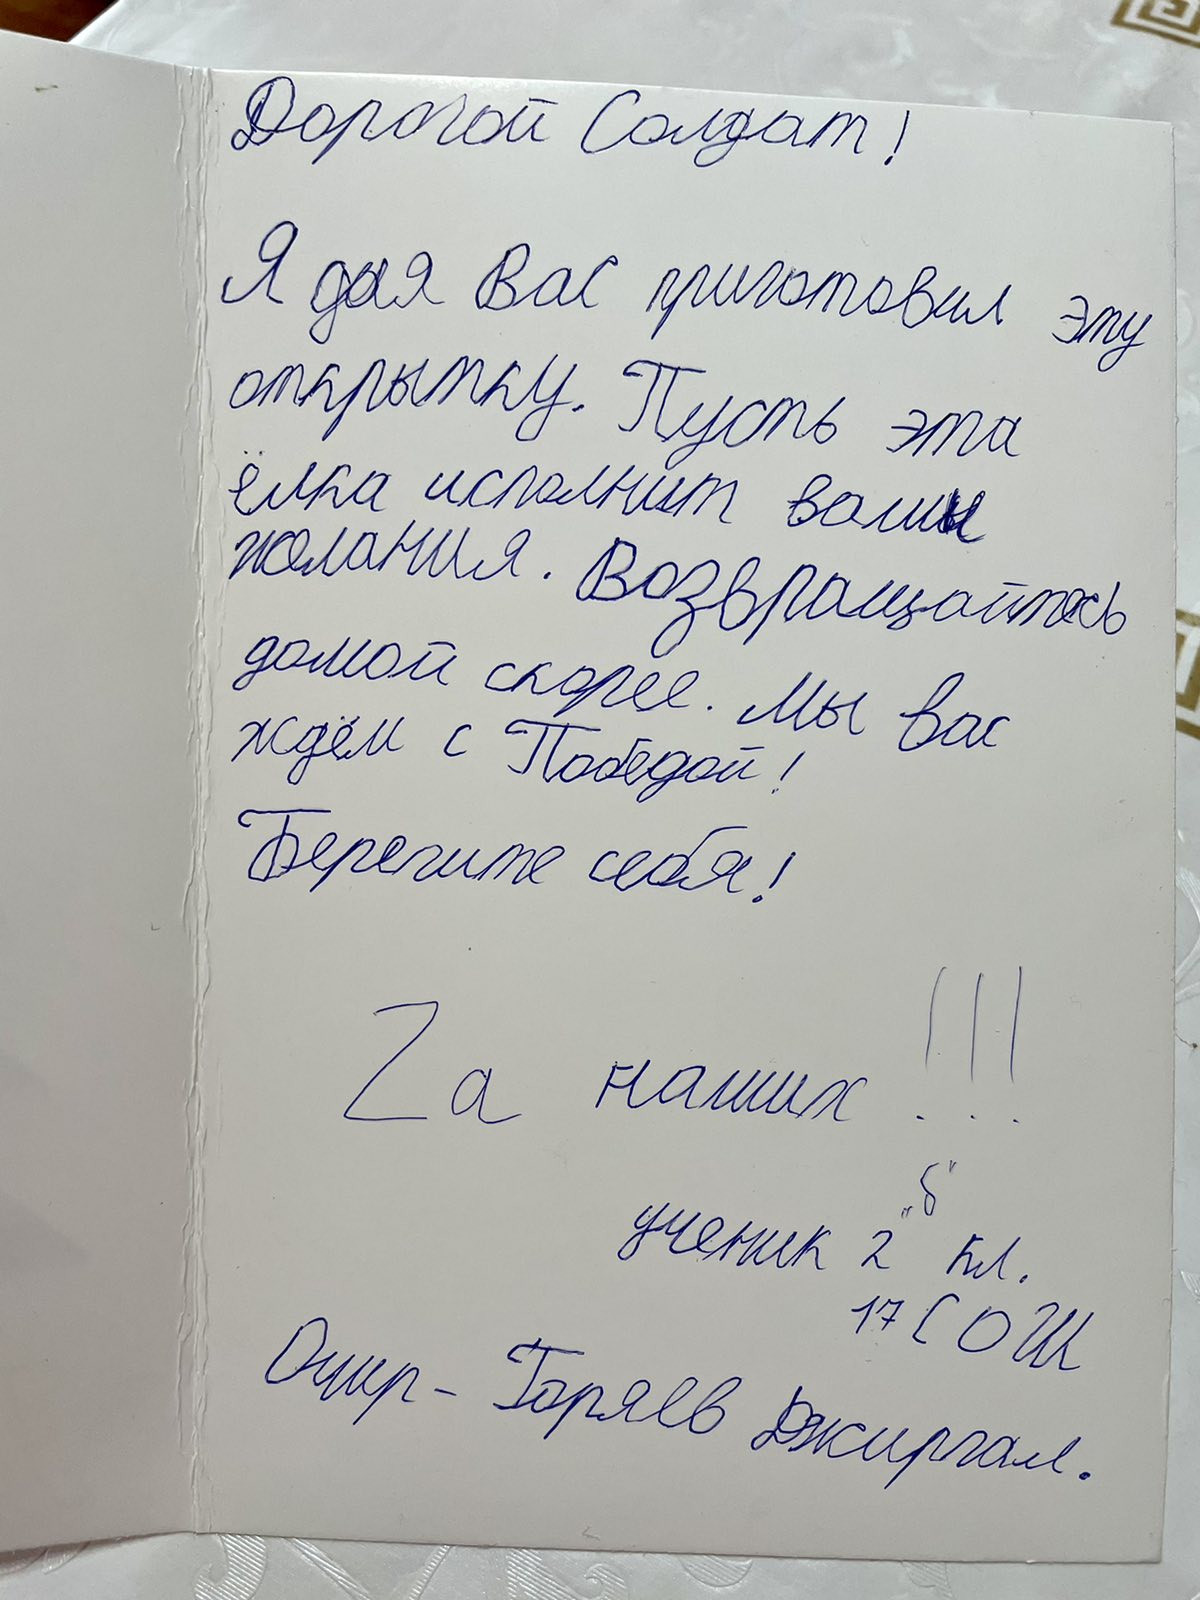 Дорогой Солдат!
Я для Вас приготовил эту
открытку. Пусть эта
ёлка исполнит ваши
желания. Возвращайтесь
домой скорее. Мы вас
ждём с Победой!
Берегите себя!
Zа наших!!!
ученик 2 "б" кл.
17 СОШ
Очир-Горяев Джиргал.